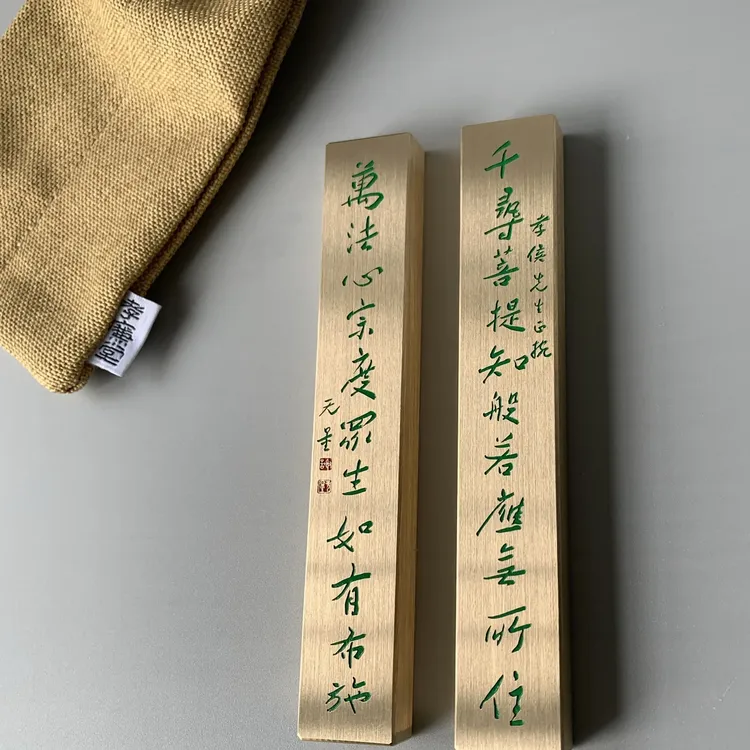 千尋菩提知般若應無所住
孝侯先生正
萬法心宗度眾生如有布施
无量